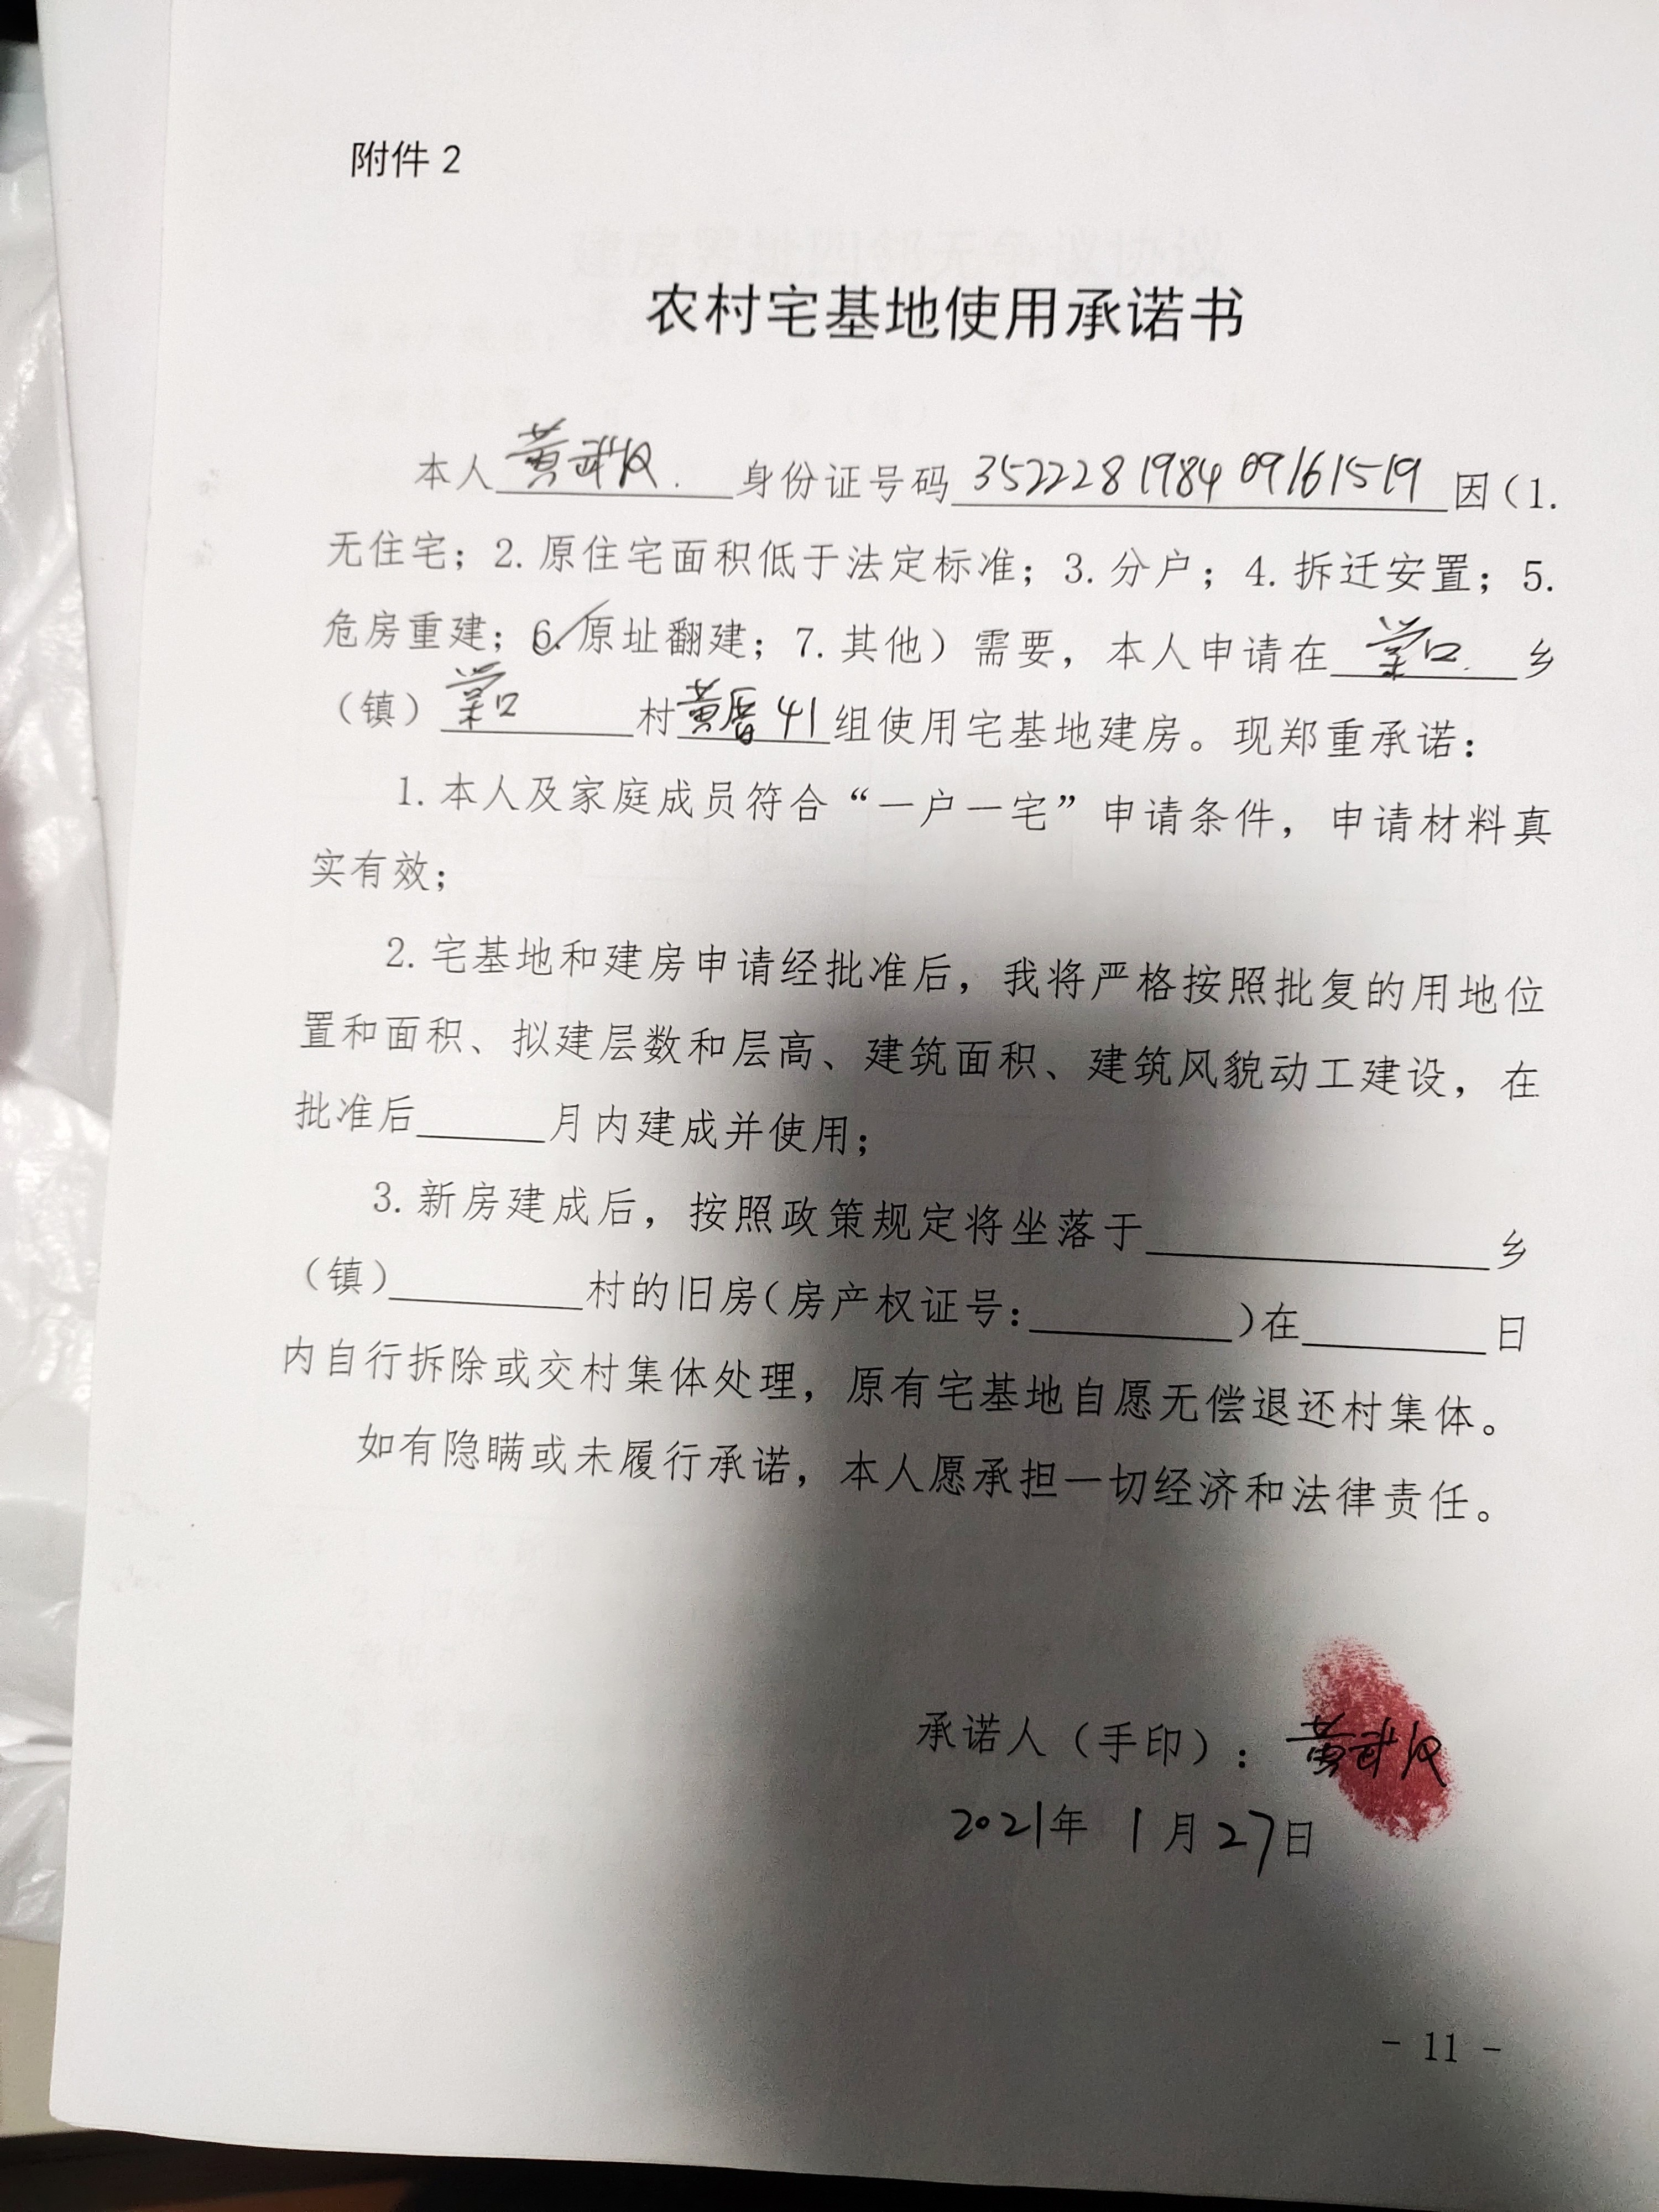 附件 2
农村宅基地使用承诺书
本人 黄武 身份证号码 352228198409161519 因(1.
无住宅；2. 原住宅面积低于法定标准；3. 分户；4. 拆迁安置；5.
危房重建；6. 原址翻建；7. 其他）需要，本人申请在 棠口 乡
（镇）棠口 村 黄厝41 组使用宅基地建房。现郑重承诺：
1. 本人及家庭成员符合“一户一宅”申请条件，申请材料真
实有效；
2. 宅基地和建房申请经批准后，我将严格按照批复的用地位
置和面积、拟建层数和层高、建筑面积、建筑风貌动工建设，在
批准后______月内建成并使用；
3. 新房建成后，按照政策规定将坐落于________________乡
（镇）_________村的旧房（房产权证号：_________）在________日
内自行拆除或交村集体处理，原有宅基地自愿无偿退还村集体。
如有隐瞒或未履行承诺，本人愿承担一切经济和法律责任。
承诺人（手印）：黄武
2021年 1月27日
- 11 -